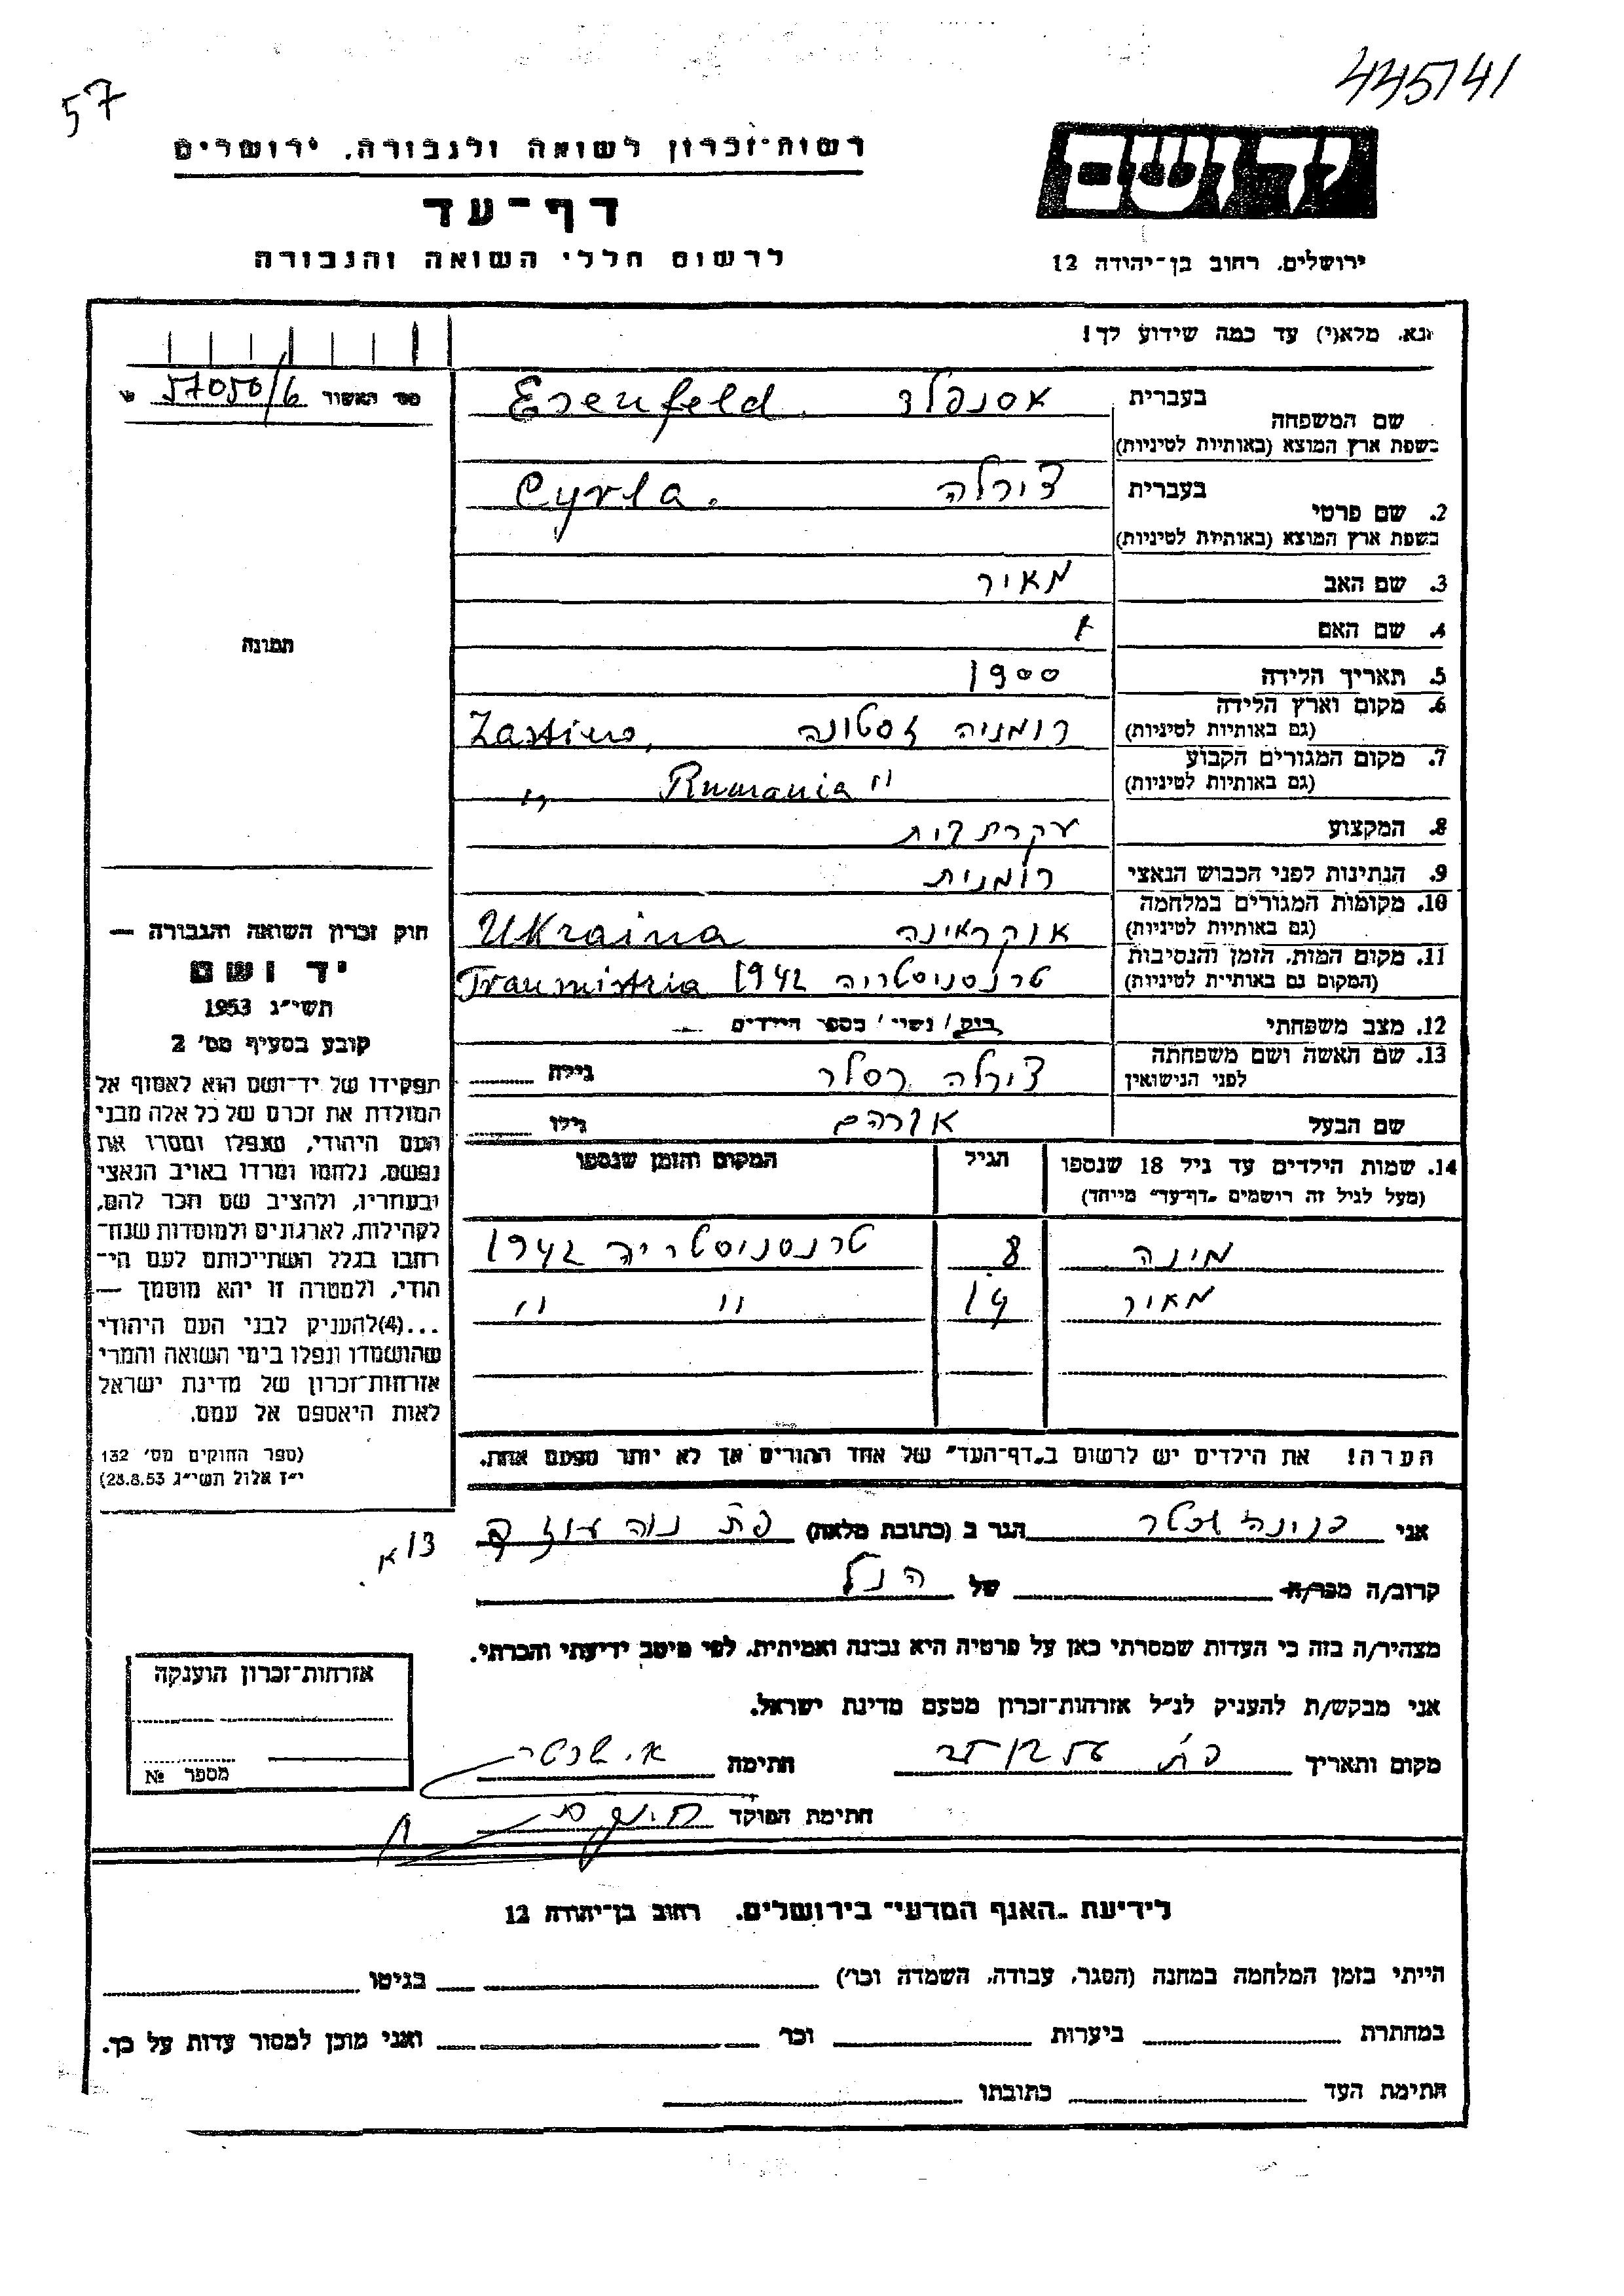 57
445741
רשות־זכרון לשואה ולגבורה, ירושלים
דף־עד
לרשום חללי השואה והגבורה
יד ושם
ירושלים, רחוב בן־יהודה 12
נא, מלא(י) עד כמה שידוע לך!
מס' האשור 57050/6
בעברית
שם המשפחה
בשפת ארץ המוצא (באותיות לטיניות)
Esenfeld אסנפלד
בעברית
2. שם פרטי
בשפת ארץ המוצא (באותיות לטיניות)
Cyrla. צירלה
3. שם האב מאיר
4. שם האם
5. תאריך הלידה 1900
6. מקום וארץ הלידה
(גם באותיות לטיניות)
רומניה זסטונה
7. מקום המגורים הקבוע
(גם באותיות לטיניות)
" Rumania "
8. המקצוע עקרת בית
9. הנתינות לפני הכבוש הנאצי רומנית
10. מקומות המגורים במלחמה
(גם באותיות לטיניות)
אוקראינה Ukraina
11. מקום המות, הזמן והנסיבות
(המקום גם באותיות לטיניות)
טרנסניסטריה 1942 Transnistria
12. מצב משפחתי רוק / נשוי / מספר הילדים
13. שם האשה ושם משפחתה
לפני הנישואין
צירלה רסלר גילה
שם הבעל אברהם גילו
14. שמות הילדים עד גיל 18 שנספו
(מעל לגיל זה רושמים "דף־עד" מיוחד)
הגיל
המקום והזמן שנספו
מינה 8 טרנסניסטריה 1942
מאיר 14 " "
הערה! את הילדים יש לרשום ב"דף־העד" של אחד ההורים אך לא יותר מפעם אחת.
תמונה
חוק זכרון השואה והגבורה —
יד ושם
תשי"ג 1953
קובע בסעיף מס' 2
תפקידו של יד־ושם הוא לאסוף אל
המולדת את זכרם של כל אלה מבני
העם היהודי, שנפלו ומסרו את
נפשם, נלחמו ומרדו באויב הנאצי
ובעוזריו, ולהציב שם וזכר להם,
לקהילות, לארגונים ולמוסדות שנח־
רבו בגלל השתייכותם לעם הי־
הודי, ולמטרה זו יהא מוסמך —
...(4)להעניק לבני העם היהודי
שהושמדו ונפלו בימי השואה והמרי
אזרחות־זכרון של מדינת ישראל
לאות היאספם אל עמם.
(ספר החוקים מס' 132
י"ז אלול תשי"ג 28.8.53)
אני פנינה הגר ב (כתובת מלאה) פת נוה עוז
13 א
קרוב/ה מכר/ה של הנ"ל
מצהיר/ה בזה כי העדות שמסרתי כאן על פרטיה היא נכונה ואמיתית, לפי מיטב ידיעתי והכרתי.
אני מבקש/ת להעניק לנ"ל אזרחות־זכרון מטעם מדינת ישראל.
מקום ותאריך חתימה
חתימת הפוקד
אזרחות־זכרון הוענקה
מספר №
לידיעת "האגף המדעי" בירושלים, רחוב בן־יהודה 12
הייתי בזמן המלחמה במחנה (הסגר, עבודה, השמדה וכו') בגיטו
במחתרת ביערות וכו' ואני מוכן למסור עדות על כך.
חתימת העד כתובתו